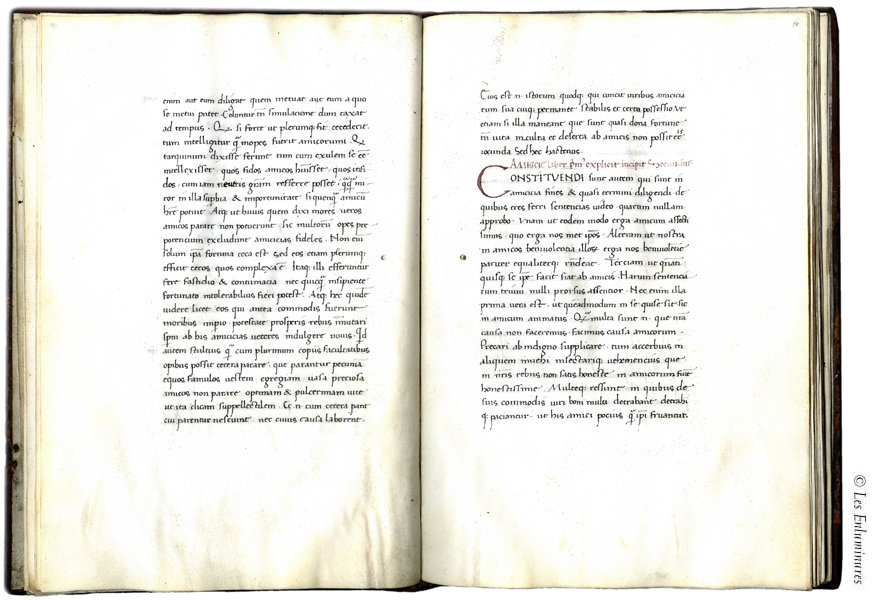 enim aut eum diligat quem metuat aut eum a quo
se metui putet Coluntur tn simulatione dum taxat
ad tempus. Q si forte ut plerumq; fit ceciderit
tum intelligitur q̃ inopes fuerit amicorum. Q
tarquinum dixisse ferunt tum cum exulem se eē
intellexisset quos fidos amicos huisset. quos infi
dos. cum iam neutris grām refferre posset. q̃q̃ mi
ror in illa suphia & importunitate si quenq̃ amicū
hr̄e potuit. Atq; ut huius quem dixi mores ueros
amicos parare non potuerunt. sic multorū opes pre
potentum excludunt amicicias fideles. Non enī
solum ipā fortuna ceca est sed eos etiam plerumq;
efficit cecos quos complexa ē. Itaq; illi efferuntur
fere fastidio & contumacia nec quicq̃ insipiente
fortunato intolerabilius fieri potest. Atq; hc quidē
uidere licet eos qui antea commodis fuerunt
moribus impio potestate prosperis rebus imutari
sp̄ni ab his amicicias ueteres indulgere nouis. Qd
autem stultius q̃ cum plurimum copiis facultatibus
opibus possit cetera parare. que parantur pecunia
equos famulos uestem egregiam uasa preciosa
amicos non parare optimam & pulcerimam uite
ut ita dicam suppellectilem. Et n̄ cum cetera parāt
cui parentur nesciunt nec cuius causa laborent.
10
Cuius est n. istorum quodq; qui uincit uiribus amicicia
rum sua cuiq; permanet stabilis et certa possessio. Vt
etiam si illa maneant que sunt quasi dona fortune
tn̄ uita inculta et deserta ab amicis non possit eē
iocunda Sed hec hactenus.
AAsicic liber pm' explicit incipit Secundus
CONSTITVENDI sunt autem qui sint in
amicicia fines & quasi termini diligendi de
quibus tres ferri sentencias uideo. quarum nullam
approbo. Vnam ut eodem modo erga amicum affecti
simus. quo erga nos met ipsos. Alteram ut nostra
in amicos beniuolencia illoꝝ erga nos beniuolencie
pariter equaliterq; rn̄deat. Terciam ut quāti
quisq; se ipse facit fiat ab amicis. Harum sentencia
rum trium nulli prorsus assentior. Nec enim illa
prima uera est. ut queadmodum in se quisq; sit sic
in amicum animatus. Q̃ multa sunt n. que nrā
causa non faceremus. facimus causa amicorum.
Precari ab indigno supplicare. tum acerbius in
aliquem inuehi insectariq; uehemencius que
in nr̄is rebus non satis honeste in amicorum fiūt
honestissime. Multeq; res sunt in quibus de
suis commodis uiri boni multa detrahunt detrahi
q; paciantur. ut his amici pocius q̃ ipī fruantur.
© Les Enluminures